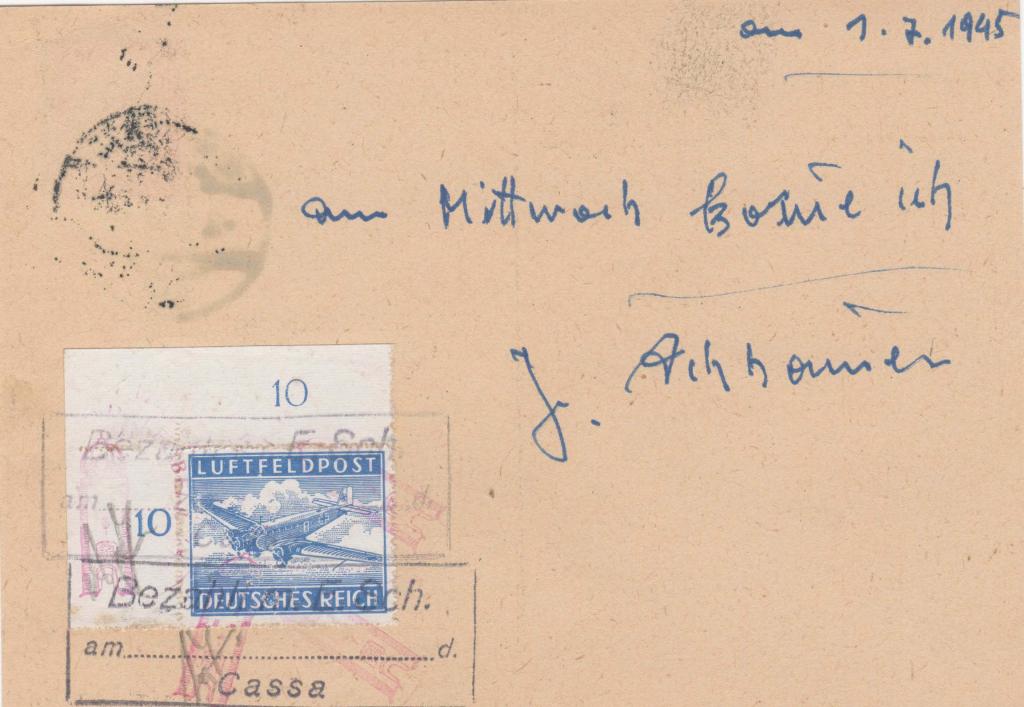 am 1.7.1945
am Mittwoch komme ich
J.
10
Bezahlt E. Sch.
am d.
10
LUFTFELDPOST
DEUTSCHES REICH
Bezahlt E. Sch.
am d.
Cassa